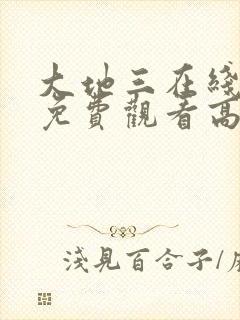 大地三在綫
免費觀看高
淺見百合子/